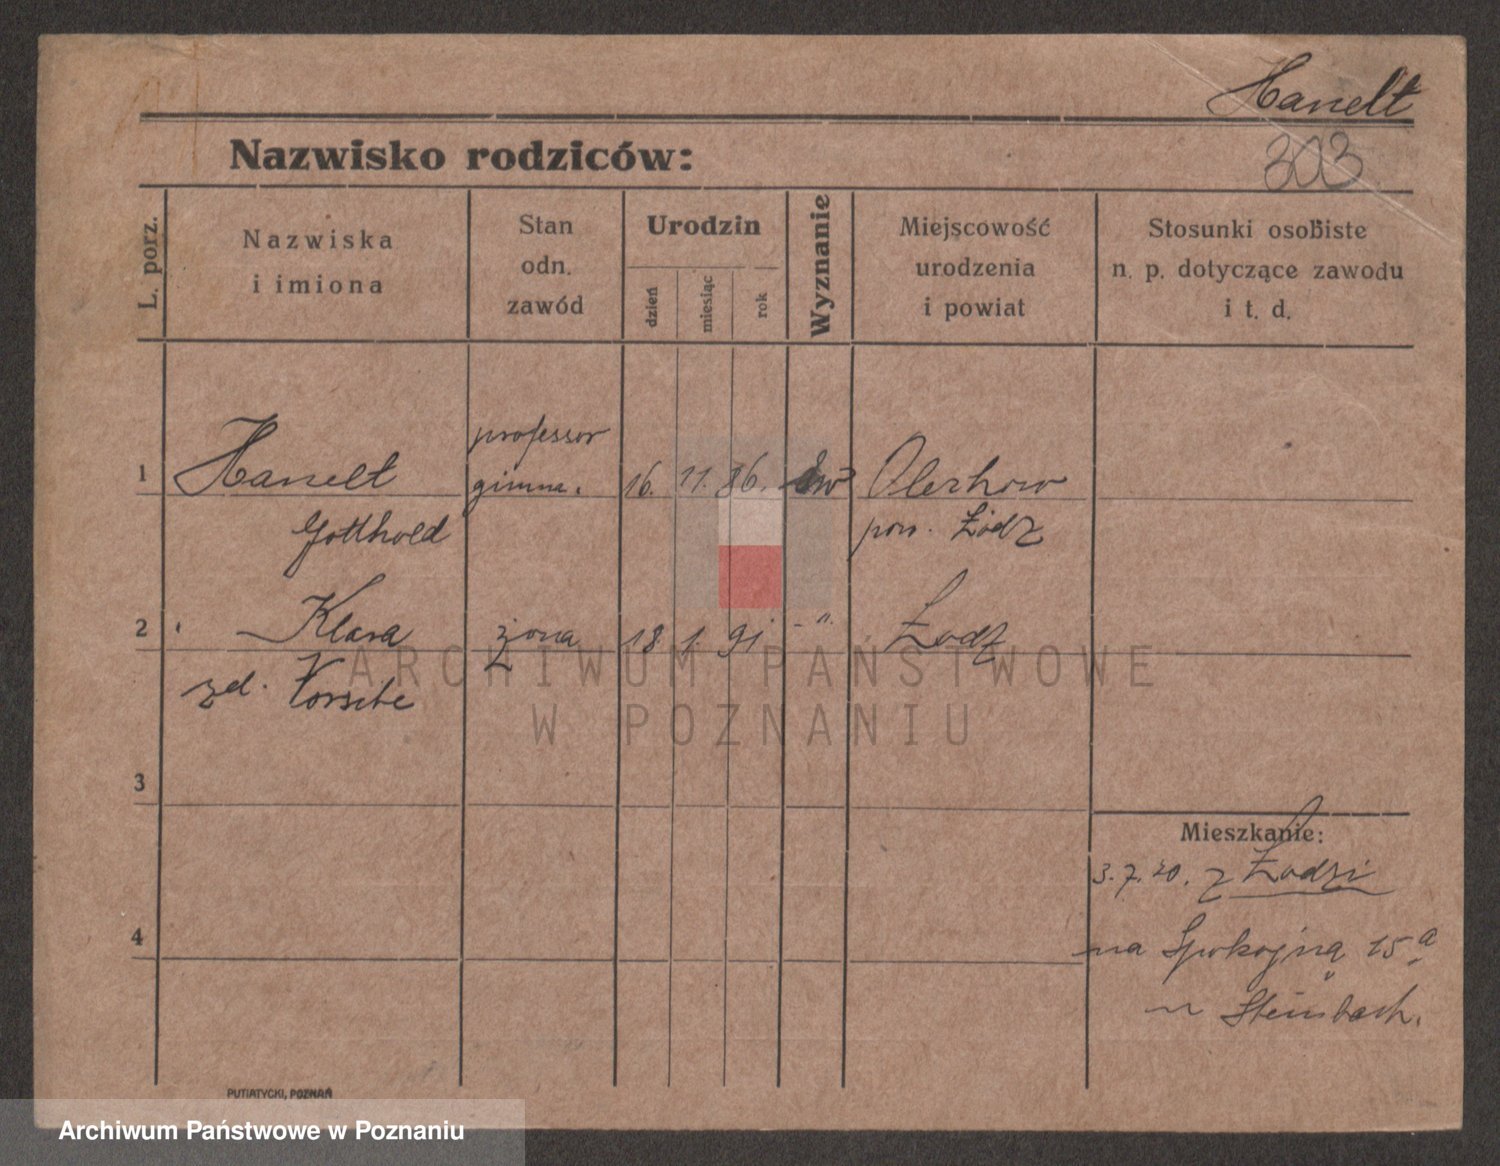 Hanelt
303
Nazwisko rodziców:
L. porz.
Nazwiska
i imiona
Stan
odn.
zawód
Urodzin
dzień
miesiąc
rok
Wyznanie
Miejscowość
urodzenia
i powiat
Stosunki osobiste
n. p. dotyczące zawodu
i t. d.
professor
1 Hanelt gimna. 16. 11. 86. ew Olechow
Gotthold pow. Łódz
2 Klara żona 18 1. 91. - " . Łodz
zd.
ARCHIWUM PAŃSTWOWE
W POZNANIU
3
Mieszkanie:
3.7.20. z Łodzi
4
na Spokojną 15a
u Steinbach.
PUTIATYCKI, POZNAŃ
Archiwum Państwowe w Poznaniu